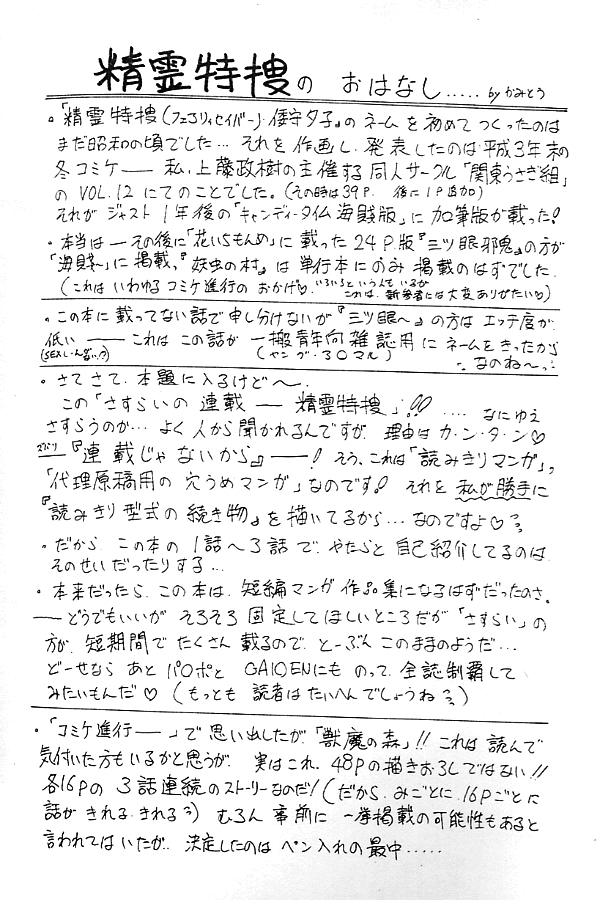 精霊特捜の おはなし..... by かみとう
。「精霊特捜(フェアリィセイバー)・倭守夕子』のネームを初めてつくったのは
まだ昭和の頃でした… それを作画し、発表したのは平成3年末の
冬コミケ── 私、上藤政樹の主催する同人サークル「関東うさぎ組」
の VOL.12 にてのことでした。(その時は39P. 後に1P追加)
それがジャスト1年後の「キャンディータイム海賊版」に加筆版が載った!
。本当は ─その後に「花いちもんめ」に載った24P.版『三ツ眼邪鬼』の方が
「海賊〜」に掲載、『妖虫の村』は単行本にのみ掲載のはずでした.
(これはいわゆるコミケ進行のおかげ♡. いろいろという人もいるが
これは、新参者には大変ありがたい♡)
。この本に載ってない話で申し分けないが『三ツ眼〜』の方はエッチ度が
低い ── これはこの話が一搬青年向雑誌用にネームをきったから
(ヤング・30マル) なのね〜
。さてさて.本題に入るけど〜.
この「さすらいの連載 ─ 精霊特捜」!! .... なにゆえ
さすらうのか… よく人から聞かれるんですが、理由はカ・ン・タ・ン♡
『連載じゃないから』──! そう、これは「読みきりマンガ」,
「代理原稿用の穴うめマンガ」なのです! それを私が勝手に
『読みきり型式の続き物』を描いてるから… なのですよ♡
。だから、この本の1話〜3話で、やたらと自己紹介してるのは
そのせいだったりする…
。本来だったら、この本は、短編マンガ作品集になるはずだったのさ.
──どうでもいいが そろそろ固定してほしいところだが「さすらい」の
方が、短期間でたくさん載るので、とーぶんこのままのようだ…
どーせなら あと パロポと GAIDENにも のって、全誌制覇して
みたいもんだ♡ (もっとも 読者はたいへんでしょうね)
。「コミケ進行──」で思い出したが、「獣魔の森」!! これは読んで
気付いた方もいるかと思うが、実はこれ、48Pの描きおろしではない!!
各16Pの 3話連続のストーリーなのだ! (だから、みごとに、16Pごとに
話が きれる、きれる) むろん 事前に 一挙掲載の可能性もあると
言われてはいたが、決定したのは ペン入れの最中.....